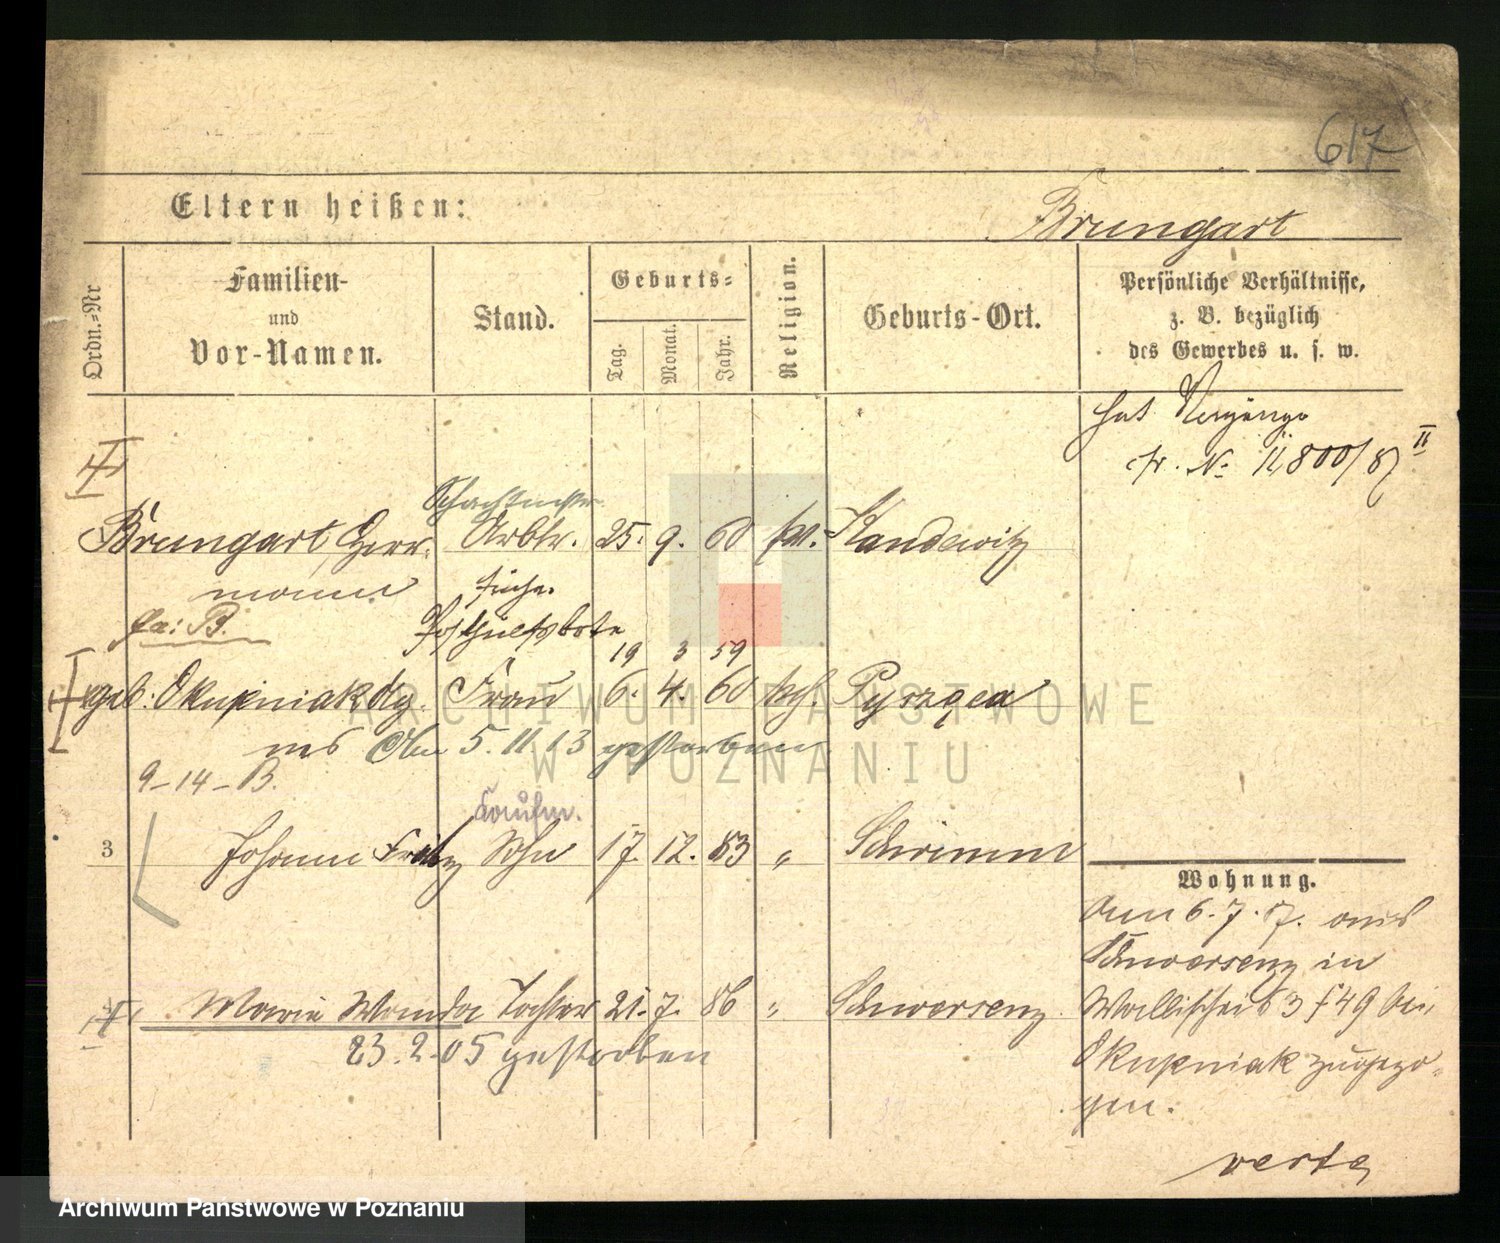 617
Eltern heißen:
Brungart
Ordn.-Nr
Familien-
und
Vor-Namen.
Stand.
Geburts-
Tag.
Monat.
Jahr.
Religion.
Geburts-Ort.
Persönliche Verhältnisse,
z. B. bezüglich
des Gewerbes u. s. w.
hat Vorgänge
II
Schachtmstr.
Brungart Herr- Arbtr. 25. 9. 60
mann
früher
fr: B.
Posthülfsbote
19 3 59
geb. Skupniak Frau 6. 4. 60 kth.
5. 11 13 gestorben
9-14-B.
Kaufm.
3 Johann Sohn 17. 12. 83 " Schrimm
Wohnung.
am 6. 7. 87. aus
Schwersenz in
Marie Wanda Tochter 21. 7. 86 " Schwersenz
Wallischei 63/49 bei
23. 2. 05 gestorben
Skupniak zugezo-
gen.
verte
ARCHIWUM PAŃSTWOWE
W POZNANIU
Archiwum Państwowe w Poznaniu